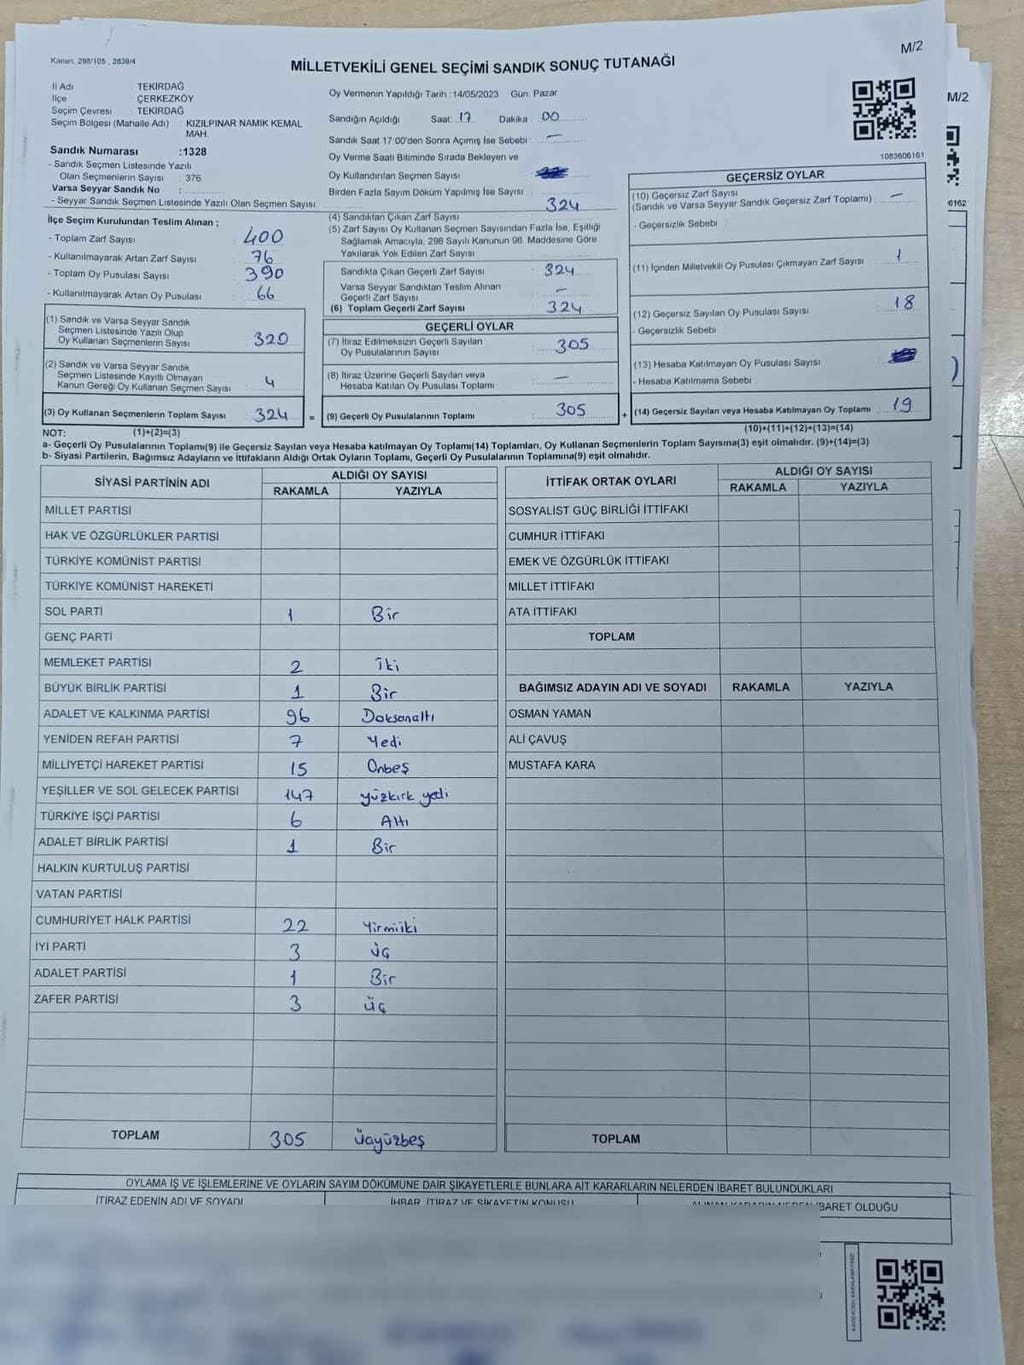 Kanun: 298/105 , 2839/4
M/2
MİLLETVEKİLİ GENEL SEÇİMİ SANDIK SONUÇ TUTANAĞI
M/2
İl Adı TEKİRDAĞ
İlçe ÇERKEZKÖY
Seçim Çevresi TEKİRDAĞ
Seçim Bölgesi (Mahalle Adı) KIZILPINAR NAMIK KEMAL
MAH.
Sandık Numarası :1328
- Sandık Seçmen Listesinde Yazılı
Olan Seçmenlerin Sayısı : 376
Varsa Seyyar Sandık No :
- Seyyar Sandık Seçmen Listesinde Yazılı Olan Seçmen Sayısı
Oy Vermenin Yapıldığı Tarih : 14/05/2023 Gün: Pazar
Sandığın Açıldığı Saat: 17 Dakika : 00
Sandık Saat 17:00'den Sonra Açılmış İse Sebebi : —
Oy Verme Saati Bitiminde Sırada Bekleyen ve
Oy Kullandırılan Seçmen Sayısı
Birden Fazla Sayım Döküm Yapılmış İse Sayısı
1083606161
İlçe Seçim Kurulundan Teslim Alınan ;
- Toplam Zarf Sayısı 400
- Kullanılmayarak Artan Zarf Sayısı 76
- Toplam Oy Pusulası Sayısı 390
- Kullanılmayarak Artan Oy Pusulası 66
(1) Sandık ve Varsa Seyyar Sandık
Seçmen Listesinde Yazılı Olup
Oy Kullanan Seçmenlerin Sayısı 320
(2) Sandık ve Varsa Seyyar Sandık
Seçmen Listesinde Kayıtlı Olmayan
Kanun Gereği Oy Kullanan Seçmen Sayısı 4
(3) Oy Kullanan Seçmenlerin Toplam Sayısı 324 =
(4) Sandıktan Çıkan Zarf Sayısı 324
(5) Zarf Sayısı Oy Kullanan Seçmen Sayısından Fazla İse, Eşitliği
Sağlamak Amacıyla, 298 Sayılı Kanunun 98. Maddesine Göre
Yakılarak Yok Edilen Zarf Sayısı
Sandıkta Çıkan Geçerli Zarf Sayısı 324
Varsa Seyyar Sandıktan Teslim Alınan
Geçerli Zarf Sayısı —
(6) Toplam Geçerli Zarf Sayısı 324
GEÇERLİ OYLAR
(7) İtiraz Edilmeksizin Geçerli Sayılan
Oy Pusulalarının Sayısı 305
(8) İtiraz Üzerine Geçerli Sayılan veya
Hesaba Katılan Oy Pusulası Toplamı —
(9) Geçerli Oy Pusulalarının Toplamı 305 +
GEÇERSİZ OYLAR
(10) Geçersiz Zarf Sayısı
(Sandık ve Varsa Seyyar Sandık Geçersiz Zarf Toplamı) —
- Geçersizlik Sebebi :
(11) İçinden Milletvekili Oy Pusulası Çıkmayan Zarf Sayısı 1
(12) Geçersiz Sayılan Oy Pusulası Sayısı 18
- Geçersizlik Sebebi :
(13) Hesaba Katılmayan Oy Pusulası Sayısı
- Hesaba Katılmama Sebebi :
(14) Geçersiz Sayılan veya Hesaba Katılmayan Oy Toplamı 19
NOT: (1)+(2)=(3) (10)+(11)+(12)+(13)=(14)
a- Geçerli Oy Pusulalarının Toplamı(9) ile Geçersiz Sayılan veya Hesaba katılmayan Oy Toplamı(14) Toplamları, Oy Kullanan Seçmenlerin Toplam Sayısına(3) eşit olmalıdır. (9)+(14)=(3)
b- Siyasi Partilerin, Bağımsız Adayların ve İttifakların Aldığı Ortak Oyların Toplamı, Geçerli Oy Pusulalarının Toplamına(9) eşit olmalıdır.
SİYASİ PARTİNİN ADI ALDIĞI OY SAYISI
RAKAMLA YAZIYLA
MİLLET PARTİSİ
HAK VE ÖZGÜRLÜKLER PARTİSİ
TÜRKİYE KOMÜNİST PARTİSİ
TÜRKİYE KOMÜNİST HAREKETİ
SOL PARTİ 1 Bir
GENÇ PARTİ
MEMLEKET PARTİSİ 2 İki
BÜYÜK BİRLİK PARTİSİ 1 Bir
ADALET VE KALKINMA PARTİSİ 96 Doksanaltı
YENİDEN REFAH PARTİSİ 7 Yedi
MİLLİYETÇİ HAREKET PARTİSİ 15 Onbeş
YEŞİLLER VE SOL GELECEK PARTİSİ 147 yüzkırk yedi
TÜRKİYE İŞÇİ PARTİSİ 6 Altı
ADALET BİRLİK PARTİSİ 1 Bir
HALKIN KURTULUŞ PARTİSİ
VATAN PARTİSİ
CUMHURİYET HALK PARTİSİ 22 Yirmiiki
İYİ PARTİ 3 Üç
ADALET PARTİSİ 1 Bir
ZAFER PARTİSİ 3 Üç
TOPLAM 305 Üçyüzbeş
İTTİFAK ORTAK OYLARI ALDIĞI OY SAYISI
RAKAMLA YAZIYLA
SOSYALİST GÜÇ BİRLİĞİ İTTİFAKI
CUMHUR İTTİFAKI
EMEK VE ÖZGÜRLÜK İTTİFAKI
MİLLET İTTİFAKI
ATA İTTİFAKI
TOPLAM
BAĞIMSIZ ADAYIN ADI VE SOYADI RAKAMLA YAZIYLA
OSMAN YAMAN
ALİ ÇAVUŞ
MUSTAFA KARA
TOPLAM
OYLAMA İŞ VE İŞLEMLERİNE VE OYLARIN SAYIM DÖKÜMÜNE DAİR ŞİKAYETLERLE BUNLARA AİT KARARLARIN NELERDEN İBARET BULUNDUKLARI
İTİRAZ EDENİN ADI VE SOYADI İHBAR, İTİRAZ VE ŞİKAYETİN KONUSU İBARET OLDUĞU